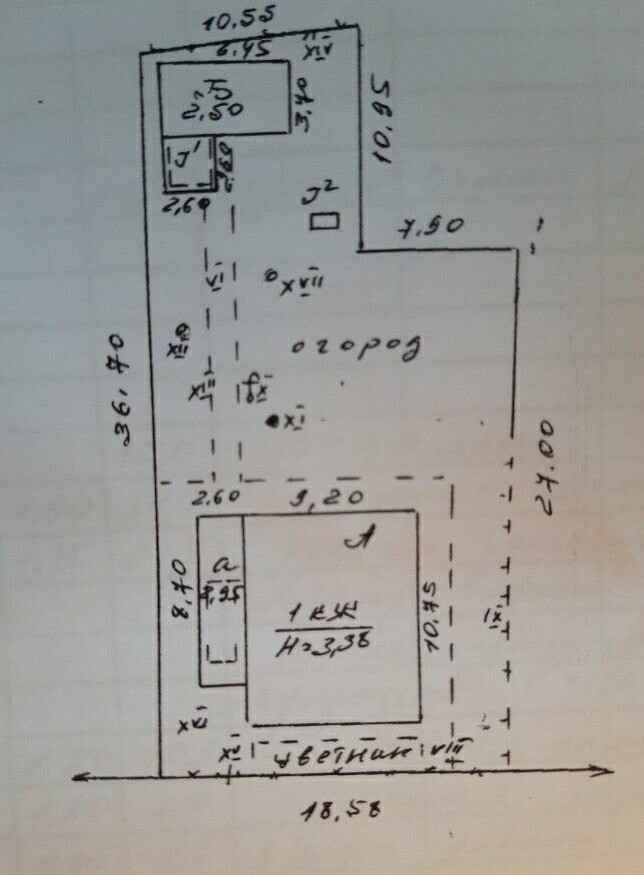 10.55
6.45
xiv
Б
2,50
3,70
10,95
Г¹
2,60
2,60
Г²
7.90
vi
xvii
огород
36,70
xiii
xii
x
xi
27.00
2.60
9,20
А
8,70
а
1 к ж
Н=3,38
10,75
ix
xvi
xv
цветник
viii
18,58